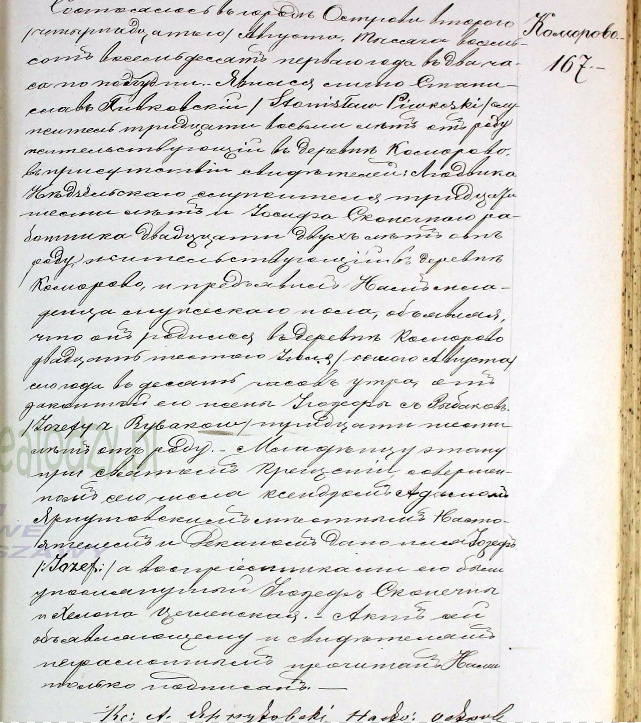 Состоялось въ городѣ Островѣ второго
/четырнадцатаго/ Августа, тысяча восемь-
Коморово.
167.-
сотъ восемьдесятъ перваго года въ два ча-
са по полудни. Явился лично Стани-
славъ Пивковскій /Stanisław Piwkoski/ слу-
житель тридцати восьми лѣтъ отъ роду
жительствующій въ деревнѣ Коморово,
въ присутствіи свидѣтелей: Людвика
служителя тридцати
шести лѣтъ и Іосифа Сконечнаго ра-
ботника двадцати двухъ лѣтъ отъ
роду, жительствующихъ въ деревнѣ
Коморово, и предъявилъ Намъ мла-
денца мужескаго пола, объявляя,
что онъ родился въ деревнѣ Коморово
двадцать шестого Іюля /седьмого Августа/
сего года въ десять часовъ утра, отъ
законной его жены Іозефы съ Рыбаковъ
/Józefy z Rybaków/ тридцати шести
лѣтъ отъ роду. - Младенцу этому
при святомъ крещеніи совершен-
номъ сего числа ксендзомъ Адамомъ
мѣстнымъ Насто-
ятелемъ и Деканомъ дано имя Іозефъ
/:Józef:/ а воспріемниками его были
упомянутый Іозефъ Сконечны
и - Актъ сей
объявляющему и свидѣтелямъ
неграмотнымъ прочитанъ Нами
только подписанъ. —
Кс: А.